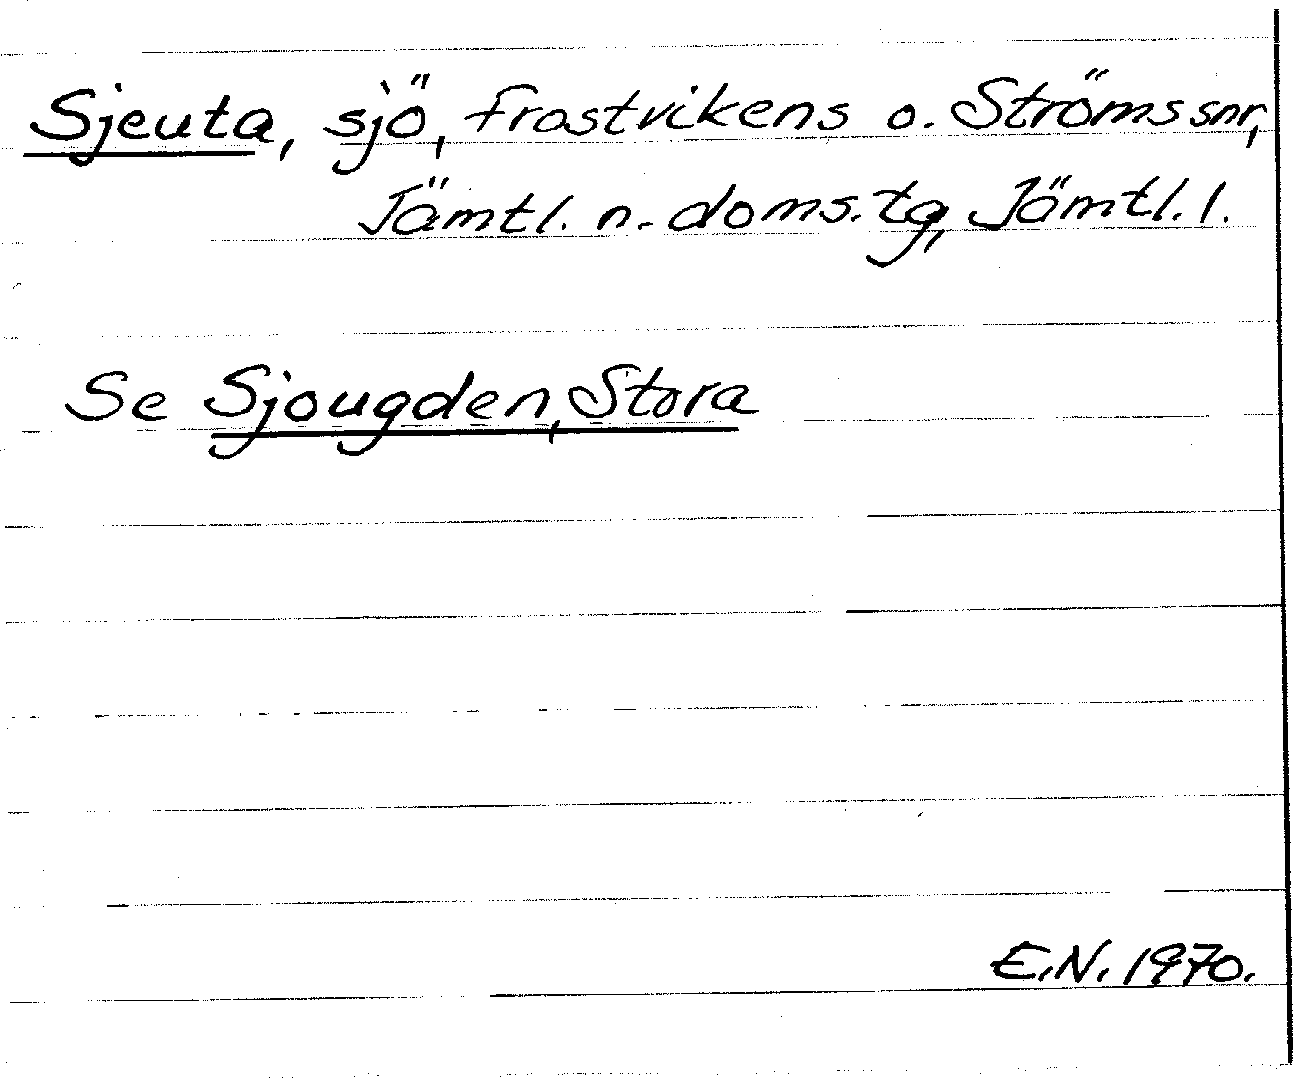 Sjeuta, sjö, Frostvikens o. Ströms snr,
Jämtl. n. doms. tg, Jämtl. l.
Se Sjougden, Stora
E.N. 1970.